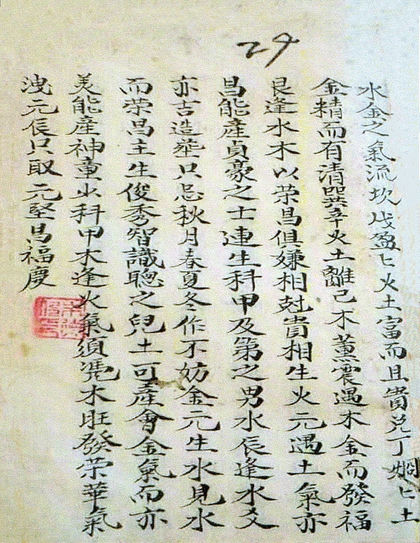 29
水金之氣流坎戊盈匕火土富而且貴兌丁烱匕土
金精而有清巽辛火土離己木董震遇木金而發福
艮逢水木以荣昌俱嫌相尅貴相生火元遇土氣亦
昌能產貞豪之士連生科甲及第之男水辰逢水爻
亦吉造塋只忌秋月春夏冬作不妨金元生水見水
而荣昌主生俊秀智識聰之兒土可產會金氣而亦
美能產神童少科甲木逢火氣須凴木旺發荣華氣
洩元辰只取元堅昌福慶